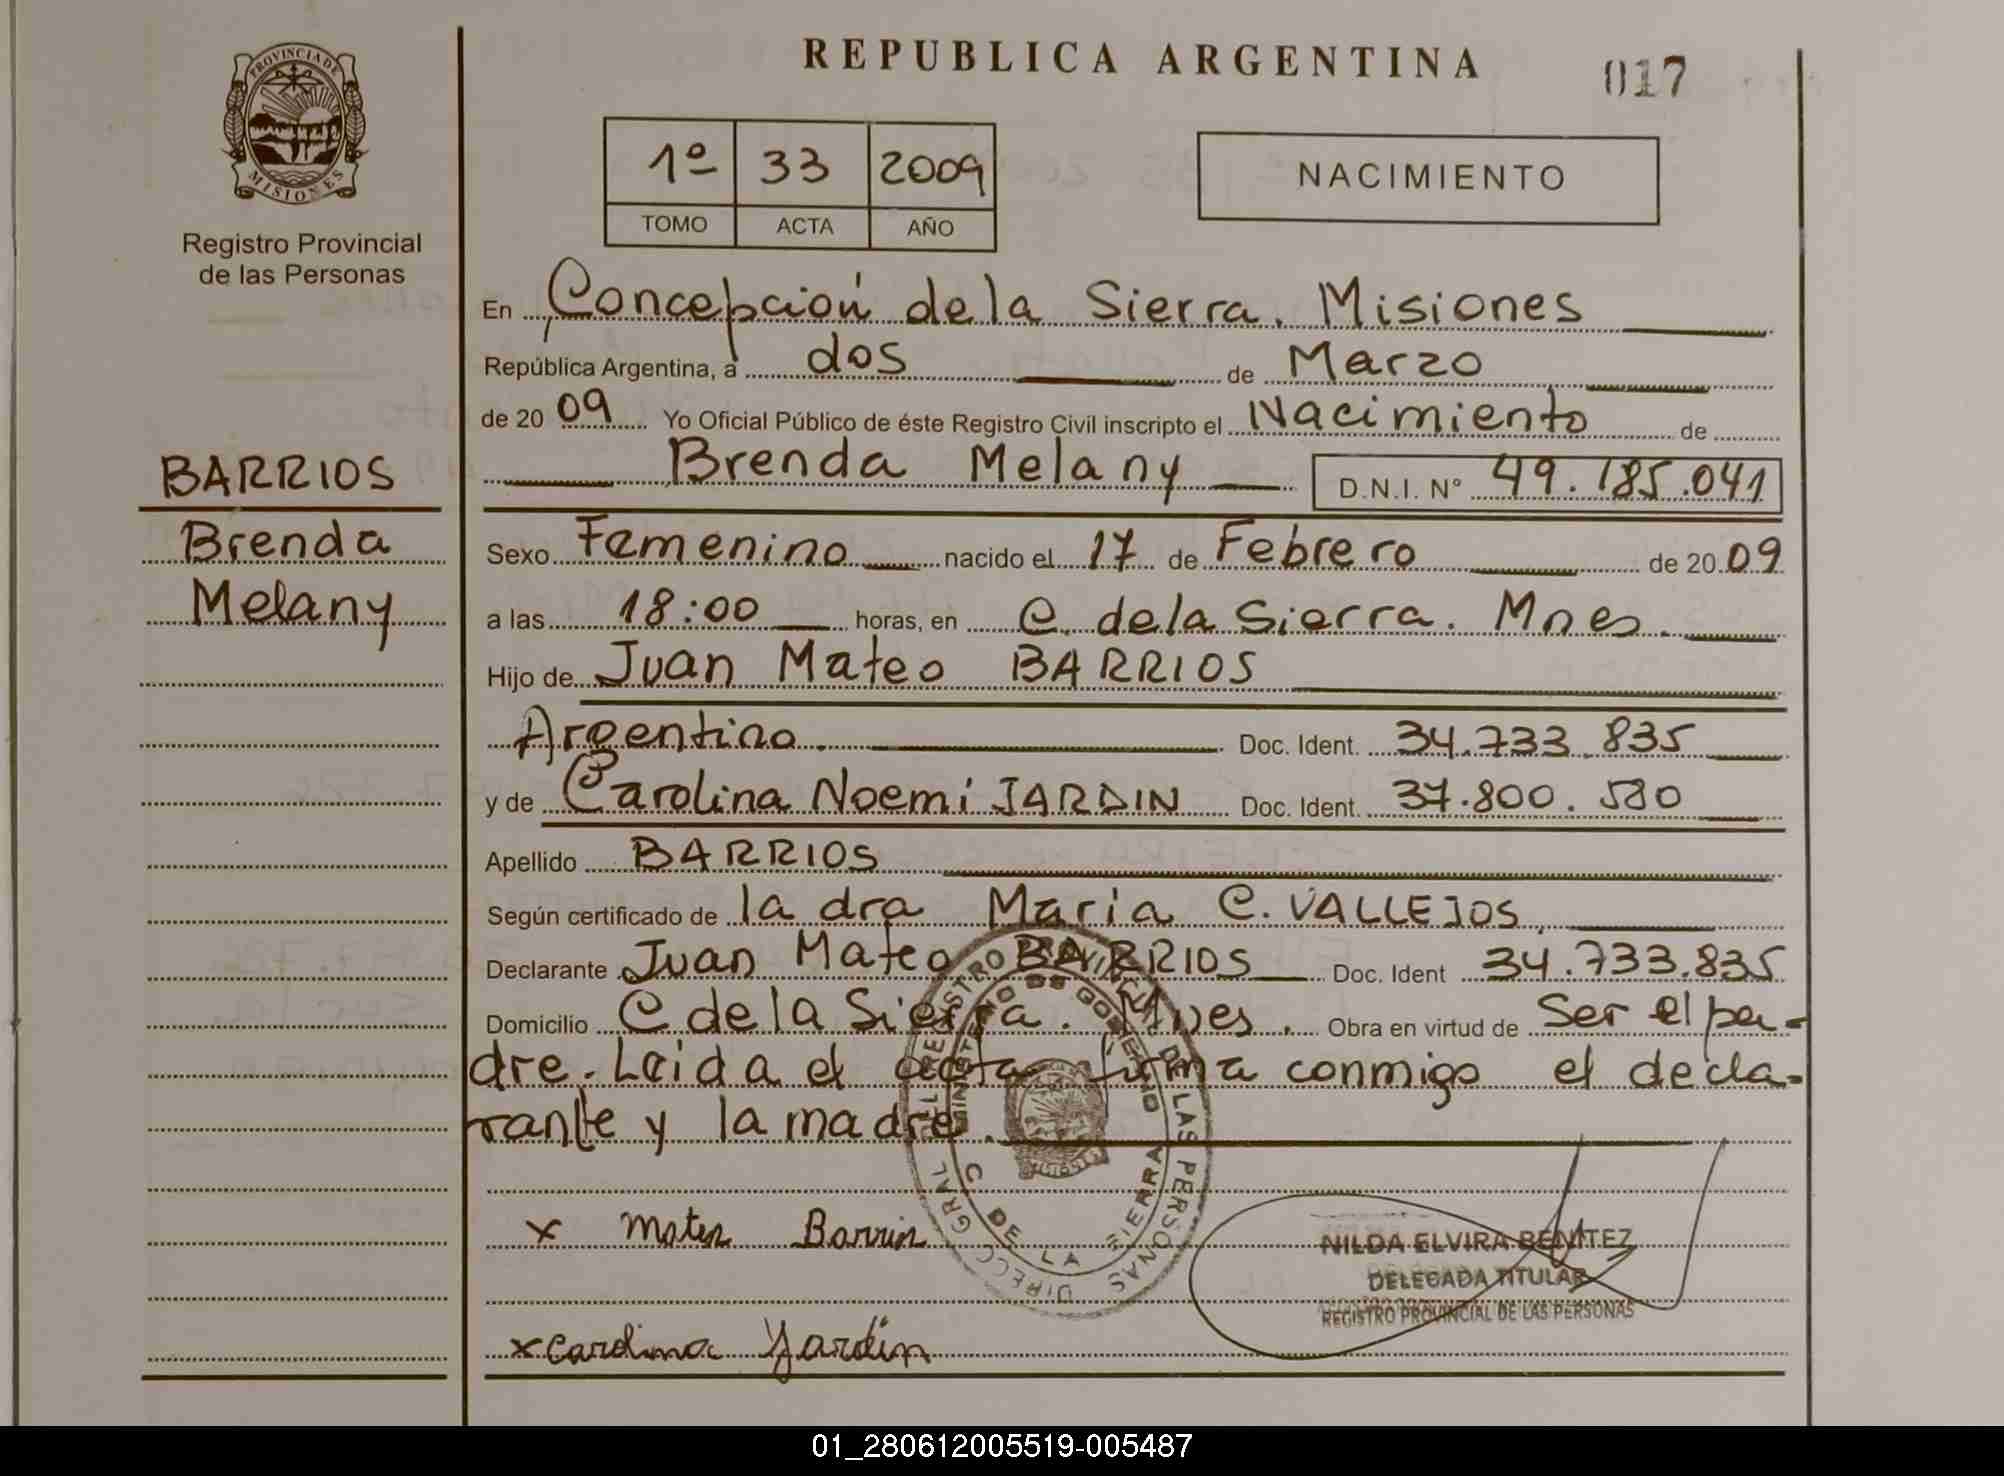 REPUBLICA ARGENTINA
017
PROVINCIA DE
MISIONES
Registro Provincial
de las Personas
1º 33 2009
TOMO ACTA AÑO
NACIMIENTO
En Concepción de la Sierra. Misiones
República Argentina, a dos de Marzo
de 2009 Yo Oficial Público de éste Registro Civil inscripto el Nacimiento de
Brenda Melany D.N.I. Nº 49.185.041
BARRIOS
Brenda
Melany
Sexo Femenino nacido el 17 de Febrero de 2009
a las 18:00 horas, en C. de la Sierra. Mnes.
Hijo de Juan Mateo BARRIOS
Argentino. Doc. Ident. 34.733.835
y de Carolina Noemi JARDIN Doc. Ident. 37.800.580
Apellido BARRIOS
Según certificado de la dra Maria C. VALLEJOS
Declarante Juan Mateo BARRIOS Doc. Ident 34.733.835
Domicilio C de la Sierra. Mnes. Obra en virtud de Ser el pa-
dre. Leida el acta firma conmigo el decla-
rante y la madre.
DIRECC GRAL DEL REGISTRO PROVINCIAL DE LAS PERSONAS
MINISTERIO DE GOBIERNO
C DE LA SIERRA
MISIONES
x Mateo Barrios
NILDA ELVIRA BENITEZ
DELEGADA TITULAR
REGISTRO PROVINCIAL DE LAS PERSONAS
x Carolina Jardin
01_280612005519-005487